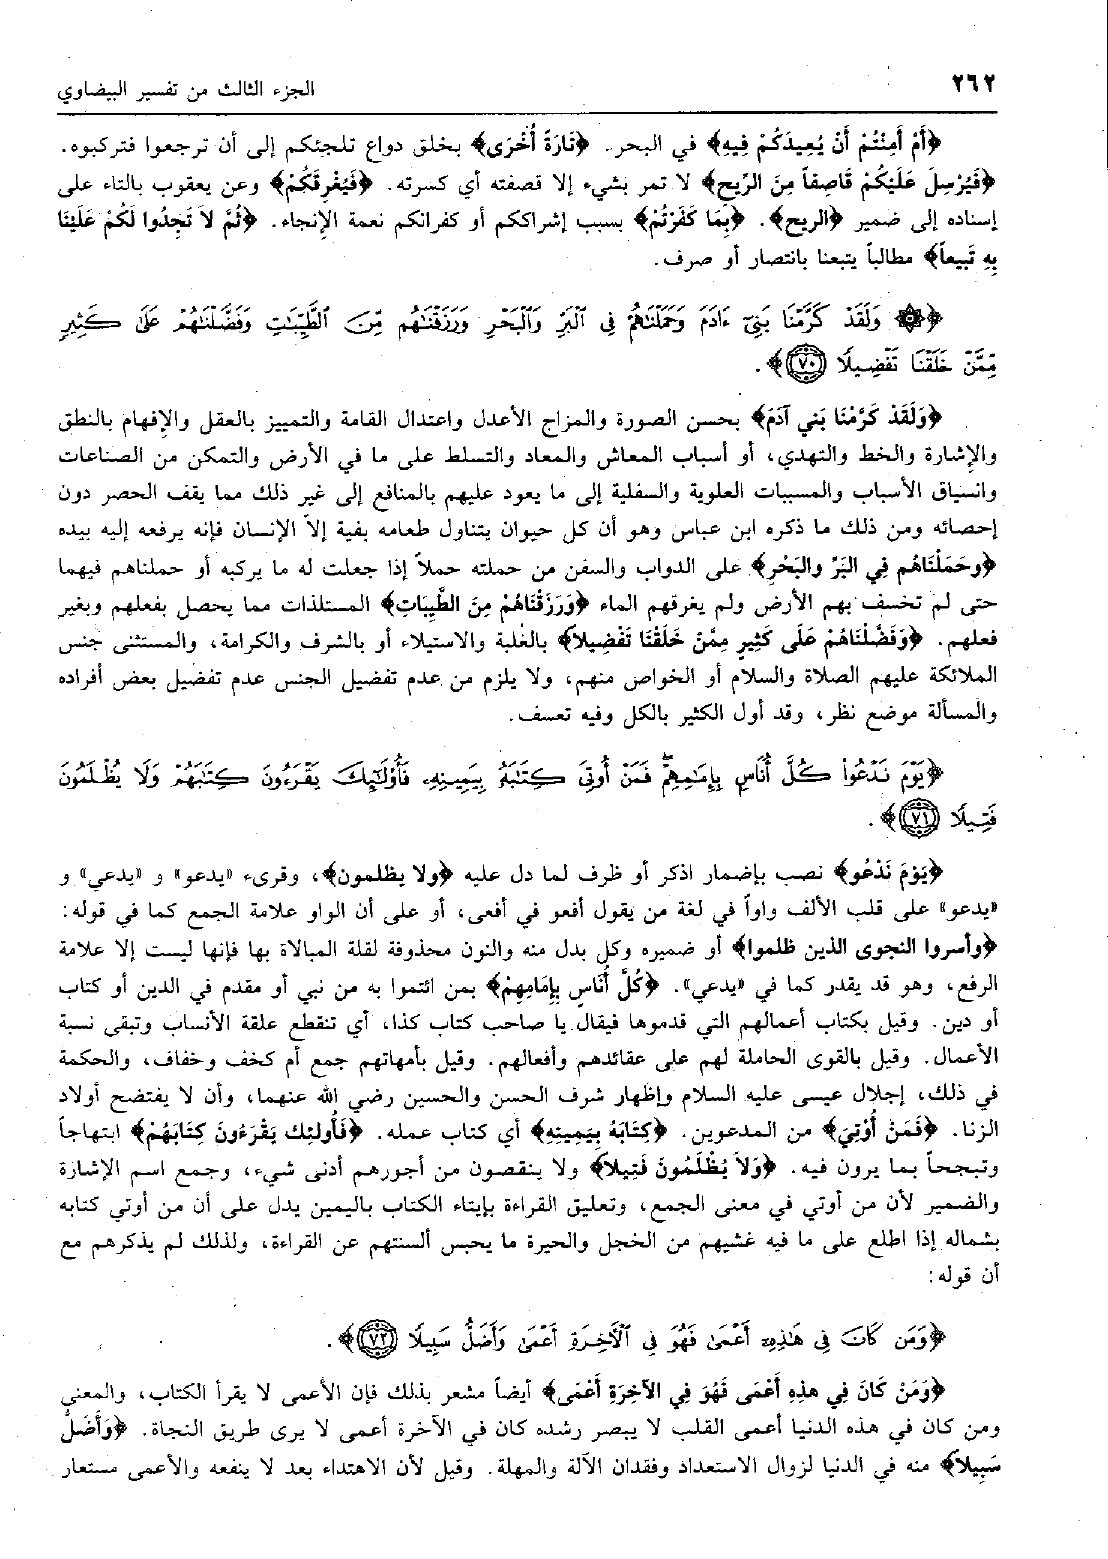 ٢٦٢
الجزء الثالث من تفسير البيضاوي
﴿أَمْ أَمِنْتُمْ أَنْ يُعِيدَكُمْ فِيهِ﴾ في البحر. ﴿تَارَةً أُخْرَى﴾ بخلق دواع تلجئكم إلى أن ترجعوا فتركبوه.
﴿فَيُرْسِلَ عَلَيْكُمْ قَاصِفاً مِنَ الرِّيحِ﴾ لا تمر بشيء إلا قصفته أي كسرته. ﴿فَيُغْرِقَكُمْ﴾ وعن يعقوب بالتاء على
إسناده إلى ضمير ﴿الريح﴾. ﴿بِمَا كَفَرْتُمْ﴾ بسبب إشراككم أو كفرانكم نعمة الإنجاء. ﴿ثُمَّ لاَ تَجِدُوا لَكُمْ عَلَيْنَا
بِهِ تَبِيعاً﴾ مطالباً يتبعنا بانتصار أو صرف.
﴿۞ وَلَقَدْ كَرَّمْنَا بَنِيٓ ءَادَمَ وَحَمَلْنَٰهُمْ فِي ٱلْبَرِّ وَٱلْبَحْرِ وَرَزَقْنَٰهُم مِّنَ ٱلطَّيِّبَٰتِ وَفَضَّلْنَٰهُمْ عَلَىٰ كَثِيرٍ
مِّمَّنْ خَلَقْنَا تَفْضِيلًا ﴿٧٠﴾﴾.
﴿وَلَقَدْ كَرَّمْنَا بَنِي آدَمَ﴾ بحسن الصورة والمزاج الأعدل واعتدال القامة والتمييز بالعقل والإفهام بالنطق
والإشارة والخط والتهدي، أو أسباب المعاش والمعاد والتسلط على ما في الأرض والتمكن من الصناعات
وانسياق الأسباب والمسببات العلوية والسفلية إلى ما يعود عليهم بالمنافع إلى غير ذلك مما يقف الحصر دون
إحصائه ومن ذلك ما ذكره ابن عباس وهو أن كل حيوان يتناول طعامه بفية إلاّ الإنسان فإنه يرفعه إليه بيده
﴿وحَمَلْنَاهُم فِي البَرِّ والبَحْرِ﴾ على الدواب والسفن من حملته حملاً إذا جعلت له ما يركبه أو حملناهم فيهما
حتى لم تخسف بهم الأرض ولم يغرقهم الماء ﴿وَرَزَقْنَاهُمْ مِنَ الطَّيِبَاتِ﴾ المستلذات مما يحصل بفعلهم وبغير
فعلهم. ﴿وَفَضَّلْنَاهُمْ عَلَى كَثِيرٍ مِمَّنْ خَلَقْنَا تَفْضِيلاً﴾ بالغلبة والاستيلاء أو بالشرف والكرامة، والمستثنى جنس
الملائكة عليهم الصلاة والسلام أو الخواص منهم، ولا يلزم من عدم تفضيل الجنس عدم تفضيل بعض أفراده
والمسألة موضع نظر، وقد أول الكثير بالكل وفيه تعسف.
﴿يَوْمَ نَدْعُواْ كُلَّ أُنَاسٍۭ بِإِمَٰمِهِمْۖ فَمَنْ أُوتِيَ كِتَٰبَهُۥ بِيَمِينِهِۦ فَأُوْلَٰٓئِكَ يَقْرَءُونَ كِتَٰبَهُمْ وَلَا يُظْلَمُونَ
فَتِيلًا ﴿٧١﴾﴾.
﴿يَوْمَ نَدْعُو﴾ نصب بإضمار اذكر أو ظرف لما دل عليه ﴿ولا يظلمون﴾، وقرىء «يدعو» و «يدعي» و
«يدعو» على قلب الألف واواً في لغة من يقول أفعو في أفعى، أو على أن الواو علامة الجمع كما في قوله:
﴿وأسروا النجوى الذين ظلموا﴾ أو ضميره وكل بدل منه والنون محذوفة لقلة المبالاة بها فإنها ليست إلا علامة
الرفع، وهو قد يقدر كما في «يدعي». ﴿كُلَّ أُنَاسٍ بِإِمَامِهِمْ﴾ بمن ائتموا به من نبي أو مقدم في الدين أو كتاب
أو دين. وقيل بكتاب أعمالهم التي قدموها فيقال يا صاحب كتاب كذا، أي تنقطع علقة الأنساب وتبقى نسبة
الأعمال. وقيل بالقوى الحاملة لهم على عقائدهم وأفعالهم. وقيل بأمهاتهم جمع أم كخف وخفاف، والحكمة
في ذلك، إجلال عيسى عليه السلام وإظهار شرف الحسن والحسين رضي الله عنهما، وأن لا يفتضح أولاد
الزنا. ﴿فَمَنْ أُوْتِيَ﴾ من المدعوين. ﴿كِتَابَهُ بِيَمِينِهِ﴾ أي كتاب عمله. ﴿فَأُولئِكَ يَقْرَءُونَ كِتَابَهُمْ﴾ ابتهاجاً
وتبجحاً بما يرون فيه. ﴿وَلاَ يُظْلَمُونَ فَتِيلاً﴾ ولا ينقصون من أجورهم أدنى شيء، وجمع اسم الإشارة
والضمير لأن من أوتي في معنى الجمع، وتعليق القراءة بإيتاء الكتاب باليمين يدل على أن من أوتي كتابه
بشماله إذا اطلع على ما فيه غشيهم من الخجل والحيرة ما يحبس ألسنتهم عن القراءة، ولذلك لم يذكرهم مع
أن قوله:
﴿وَمَن كَانَ فِي هَٰذِهِۦٓ أَعْمَىٰ فَهُوَ فِي ٱلْأَخِرَةِ أَعْمَىٰ وَأَضَلُّ سَبِيلًا ﴿٧٢﴾﴾.
﴿وَمَنْ كَانَ فِي هذِهِ أَعْمَى فَهُوَ فِي الآخِرَةِ أَعْمَى﴾ أيضاً مشعر بذلك فإن الأعمى لا يقرأ الكتاب، والمعنى
ومن كان في هذه الدنيا أعمى القلب لا يبصر رشده كان في الآخرة أعمى لا يرى طريق النجاة. ﴿وَأَضَلُّ
سَبِيلاً﴾ منه في الدنيا لزوال الاستعداد وفقدان الآلة والمهلة. وقيل لأن الاهتداء بعد لا ينفعه والأعمى مستعار